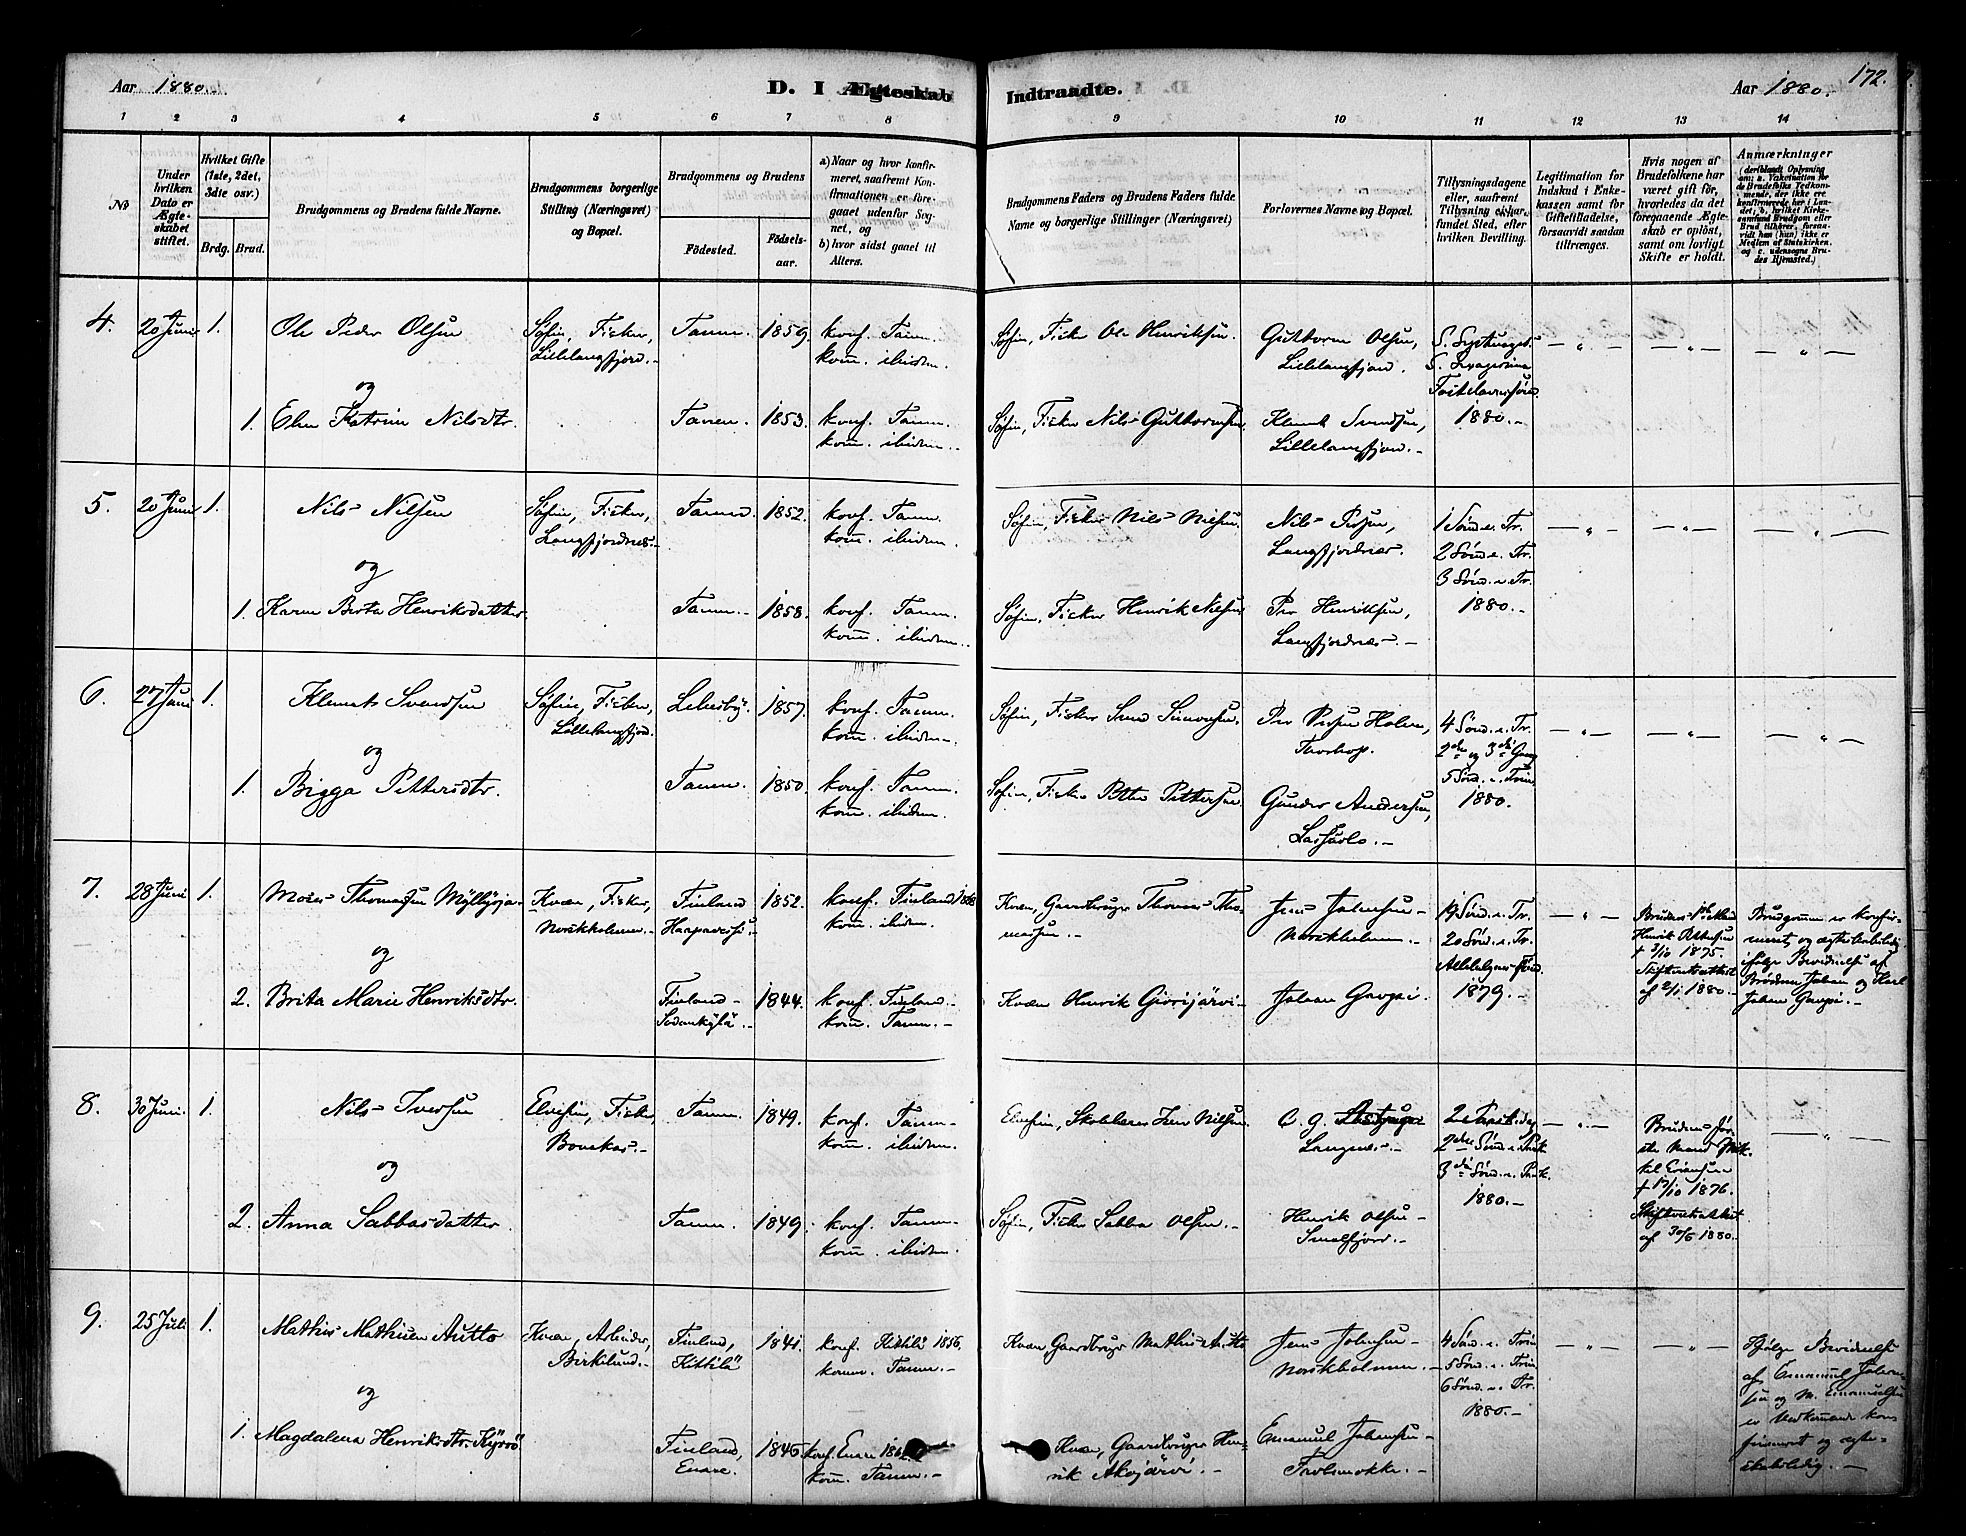 Aar 1880.
D. I Ægteskab
Indtraadte.
Aar 1880.
172.
1 2 3 4 5 6 7 8
9 10 11 12 13 14
No
Under hvilken Dato er Ægteskabet stiftet.
Hvilket Gifte (1ste, 2det, 3die osv.)
Brdg. Brud.
Brudgommens og Brudens fulde Navne.
Brudgommens borgerlige Stilling (Næringsvei) og Bopæl.
Brudgommens og Brudens
Fødested.
Fødselsaar.
a) Naar og hvor konfirmeret, saafremt Konfirmationen er foregaaet udenfor Sognet, og
b) hvor sidst gaaet til Alters.
Brudgommens Faders og Brudens Faders fulde Navne og borgerlige Stillinger (Næringsvei)
Forlovernes Navne og Bopæl.
Tillysningsdagene eller, saafremt Tillysning ei har fundet Sted, efter hvilken Bevilling.
Legitimation for Indskud i Enkekassen samt for Giftetilladelse, forsaavidt saadan tiltrænges.
Hvis nogen af Brudefolkene har været gift før, hvorledes da det foregaaende Ægteskab er opløst, samt om lovligt Skifte er holdt.
Anmærkninger
(deriblandt Oplysning om: a. Vakcination for de Brudefolks Vedkommende, der ikke ere konfirmerede her i Landet, b. hvilket Kirkesamfund Brudgom eller Brud tilhører, forsaavidt han (hun) ikke er Medlem af Statskirken, og c. udensogns Brudes Hjemsted.)
4. 20 Juni 1. Ole Peder Olsen
Søfin, Fisker, Lillelangfjord.-
Tanen. 1859. konf. Tanen.
kom. ibidem.
Søfin, Fisker Ole Henriksen.
Guttorm Olsen, Lillelangfjord.
1880.
og
1. Elen Katrine Nilsdtr.
Tanen. 1853. konf. Tanen.
kom. ibidem.
Søfin, Fisker Nils Guttormsen.
Klemet Svendsen, Lillelangfjord.-
5. 20 Juni 1. Nils Nilsen
Søfin, Fisker, Langfjordnes.-
Tanen. 1852. konf. Tanen.
kom. ibidem.
Søfin, Fisker Nils Nilsen.
Nils Persen, Langfjordnes.
1 Sønd. e. Tr.
2 Sønd. e. Tr.
3 Sønd. e. Tr.
1880.-
og
1. Karen Berta Henriksdatter.
Tanen.- 1858. konf. Tanen.
kom. ibidem.
Søfin, Fisker Henrik Nilsen
Per Henriksen, Langfjordnes.-
6. 27 Juni 1. Klemet Svendsen
Søfin, Fisker, Lillelangfjord.
Lebesby. 1857. konf. Tanen.
kom. ibidem.
Søfin, Fisker Svend Simonsen.
Per Persen Holm, Torhop.
4 Sønd. e. Tr.
2den og 3die Gang
5 Sønd. e. Trin.
1880.
og
1. Bigga Pettersdtr.
Tanen. 1850. konf. Tanen.
kom. ibidem.
Søfin, Fisker Petter Pettersen
Gunder Andersen,
7. 28 Juni 1. Moses Thomassen Myllyoja
Kvæn, Fisker, Norskholmen.-
Finland Haapavesi. 1852. konf. Finland 1868
kom. ibidem.
Kvæn, Gaardbruger Thomas Thomassen.-
Jens Johnsen- Norskholmen.-
19 Sønd. e. Tr.
20 Sønd. e. Tr.
Allehelgens Sønd.
1879.-
Brudens 1ste Mand Henrik Pettersen † 3/10 1875. Skifteretsattest af 2/1 1880.-
Brudgommen er konfirmeret og ægteskabsledig ifølge Bevidnelse af Brødrene Johan og Karl Johan Gaupi.
og
2. Brita Marie Henriksdtr.
Finland- Sodankylä.- 1844. konf. Finland-
kom. Tanen.-
Kvæn Henrik Giorijärvi-
Johan Gaupi.
8. 30 Juni. 1. Nils Iversen
Elvefin, Fisker, Bonekas.-
Tanen. 1849. konf. Tanen-
kom. ibidem.
Elvefin, Skolelærer Iver Nilsen
C. G.
Langnes.-
2de Paaskedag
2den Sønd. e. Paask
3die Sønd. e. Paask.
1880.-
Brudens første Mand Mikkel Eriksen † 17/10 1876. Skifteretsattest af 30/6 1880.
og
2. Anna Sabbasdatter.
Tanen. 1849. konf. Tanen-
kom. ibidem.
Søfin, Fisker Sabba Olsen.-
Henrik Olsen- Smalfjord.-
9. 25 Juli 1. Mathis Mathisen Autto
Kvæn, Arbeider, Birkelund.-
Finland, Kittilä 1841. konf. Kittilä 1856.
komm. Tanen.-
Kvæn, Gaardbruger Mathis Autto
Jens Johnsen- Norskholmen.-
4 Sønd. e. Trin.
5 Sønd. e. Trin.
6 Sønd. e. Tr.
1880.-
Ifølge Bevidnelse af Emanuel Johnsen og M. Emanuelsen er Vedkommende konfirmeret og ægteskabsledig.-
og
1. Magdalena Henriksdtr. Kyrö
Finland, Enare. 1845 konf. Enare
kom. Tanen.-
Kvæn, Gaardbruger Henrik Akojärvi.-
Emanuel Johnsen- Trolsnokke.-